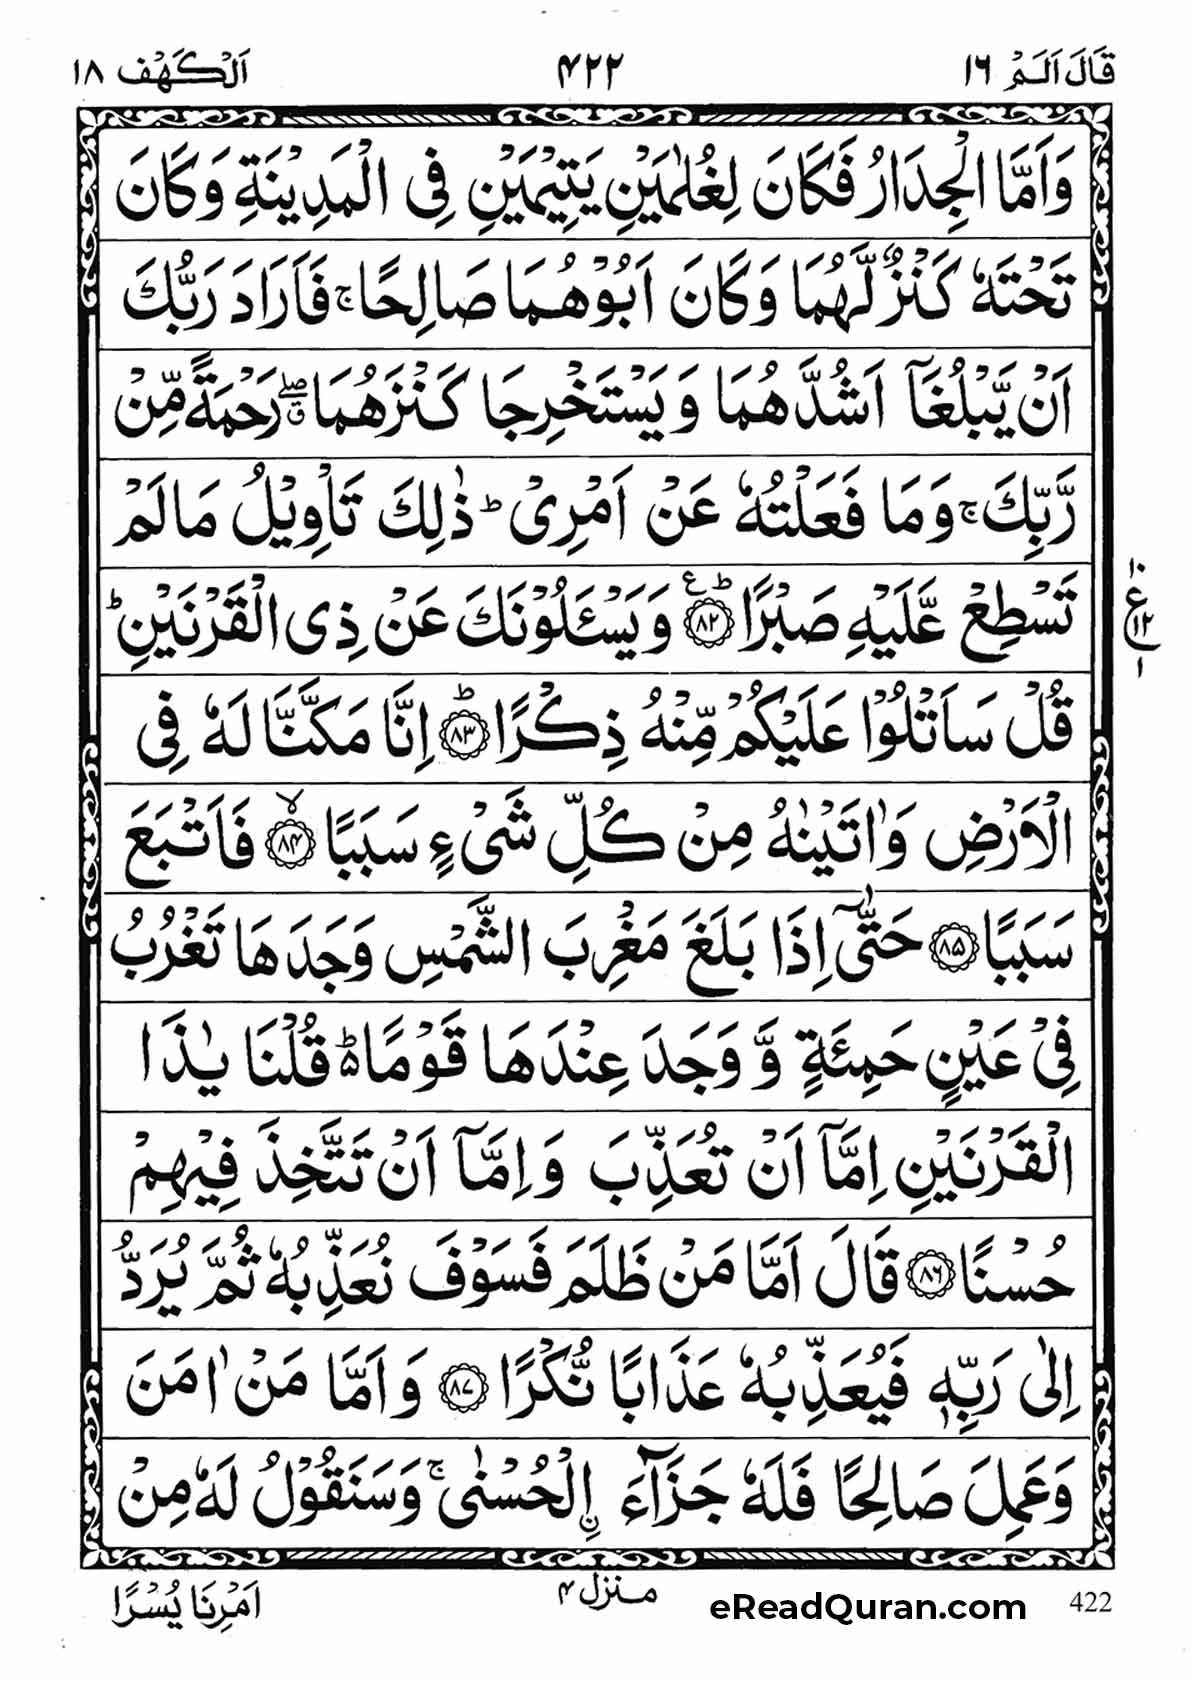 قَالَ اَلَمْ ١٦ ٤٢٢ اَلْكَهْف ١٨
وَاَمَّا الْجِدَارُ فَكَانَ لِغُلٰمَيْنِ يَتِيْمَيْنِ فِى الْمَدِيْنَةِ وَكَانَ
تَحْتَهٗ كَنْزٌ لَّهُمَا وَكَانَ اَبُوْهُمَا صَالِحًا ۚ فَاَرَادَ رَبُّكَ
اَنْ يَّبْلُغَاۤ اَشُدَّهُمَا وَيَسْتَخْرِجَا كَنْزَهُمَا ۖۗ رَحْمَةً مِّنْ
رَّبِّكَ ۚ وَمَا فَعَلْتُهٗ عَنْ اَمْرِىْ ؕ ذٰلِكَ تَاْوِيْلُ مَا لَمْ
تَسْطِعْ عَّلَيْهِ صَبْرًا ؕ ع ﴿٨٢﴾ وَيَسْـَٔلُوْنَكَ عَنْ ذِى الْقَرْنَيْنِ ؕ
١٠ ع ١٢ ١
قُلْ سَاَتْلُوْا عَلَيْكُمْ مِّنْهُ ذِكْرًا ؕ ﴿٨٣﴾ اِنَّا مَكَّنَّا لَهٗ فِى
الْاَرْضِ وَاٰتَيْنٰهُ مِنْ كُلِّ شَىْءٍ سَبَبًا ۙ ﴿٨٤﴾ فَاَتْبَعَ
سَبَبًا ﴿٨٥﴾ حَتّٰٓى اِذَا بَلَغَ مَغْرِبَ الشَّمْسِ وَجَدَهَا تَغْرُبُ
فِىْ عَيْنٍ حَمِئَةٍ وَّ وَجَدَ عِنْدَهَا قَوْمًا ؕ۬ قُلْنَا يٰذَا
الْقَرْنَيْنِ اِمَّاۤ اَنْ تُعَذِّبَ وَاِمَّاۤ اَنْ تَتَّخِذَ فِيْهِمْ
حُسْنًا ﴿٨٦﴾ قَالَ اَمَّا مَنْ ظَلَمَ فَسَوْفَ نُعَذِّبُهٗ ثُمَّ يُرَدُّ
اِلٰى رَبِّهٖ فَيُعَذِّبُهٗ عَذَابًا نُّكْرًا ﴿٨٧﴾ وَاَمَّا مَنْ اٰمَنَ
وَعَمِلَ صَالِحًا فَلَهٗ جَزَآءَ ۨالْحُسْنٰى ۚ وَسَنَقُوْلُ لَهٗ مِنْ
اَمْرِنَا يُسْرًا
منزل ٤ eReadQuran.com 422